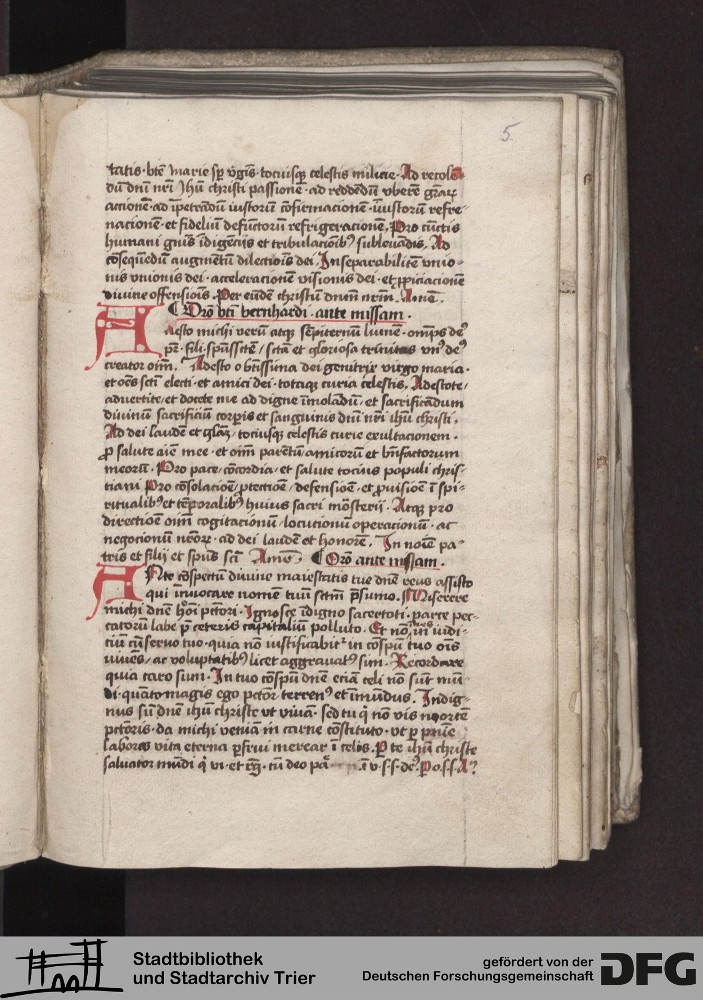 5
tatis · btē Marie sp̄ v̄gīs · tociusq̄ celestis milicie · Ad recolē
dū dnī nrī Jhū christi passionē · ad reddendū vberē grāꝝ
actionē · ad īpetrādū iustorū cōfirmacionē · iniustorū refre
nacionē · et fideliū defūctorū refrigeracionē. Pro cūctis
humani gnīs īdigēciis et tribulacioīb⁹ subleuādis. Ad
cōsequēdū augmētū dilectiois dei. Inseparabilitē vnio-
nis vnionis dei · acceleracionē visionis dei · et ꝓpiciacionē
diuine offensiois. Per eūdē christū dnm̄ nrm̄. Amē.
¶ Orō btī bernhardi · ante missam ·
Aesto michi verū atq̄ sēpiternū lumē · omps de⁹
pr̄ · fili · spūssctē / sctā et gloriosa trinitas vn⁹ de⁹
creator oīm. Adesto o btissima dei genitrix virgo maria ·
et oēs sctī electi · et amici dei · totaq̄ curia celestis. Adestote /
aduertite / et docete me ad digne īmoladū / et sacrificādum
diuinū sacrificiū corpīs et sanguinis dnī nrī ihū christi.
Ad dei laudē et glāz / tociusq̄ celestis curie exultacionem ·
ꝓ salute aīe mee · et oīm parētū / amicorū et bn̄factorum
meorū. Pro pace / cōcordia / et salute tocius populi chris-
tiani Pro cōsolacioē / ꝓtectioē / defensioē / et ꝓuisioē ī spi-
ritualib⁹ et tēporalib⁹ huius sacri mōsterii. Atq̄ pro
directioē oīm cogitacionū / locutionū operacionū · ac
negocionū nrorꝝ · ad dei laudē et honorē. In noīe pa-
tris et filij et spūs sctī Amē. ¶ Orō ante missam ·
ANte cōspectū diuine maiestatis tue dnē reus assisto
qui inuocare nomē tuū sctm̄ p̄sumo. Miserere
michi dnē hoīi pctōri. Ignosce īdigno sacerdoti · parce pec-
catorū labē p̄ ceteris capitaliū polluto. Et nō intres in iudi-
ciū cū seruo tuo · quia nō iustificabit͛ in cōspū tuo oīs
viuēs / ac voluptatib⁹ licet aggrauat⁹ sim. Recordare
quia caro sum. In tuo cōspū dnē eciā celi nō sūt mū
di · quāto magis ego pctōr terren⁹ et imūdus. Indig-
nus sū dnē ihū christe vt viuā · sed tu q̄ nō vis mortē
pctōris · da michi veniā in carne cōstituto · vt p̄ pnīe
labores vita eterna p̄frui merear ī celis. P te ihū christe
saluator mūdi q̄ vi · et rḡ · cū deo pā ī v · s · s · de⁹. P o.s.s. A?
Stadtbibliothek
und Stadtarchiv Trier
gefördert von der
Deutschen Forschungsgemeinschaft
DFG